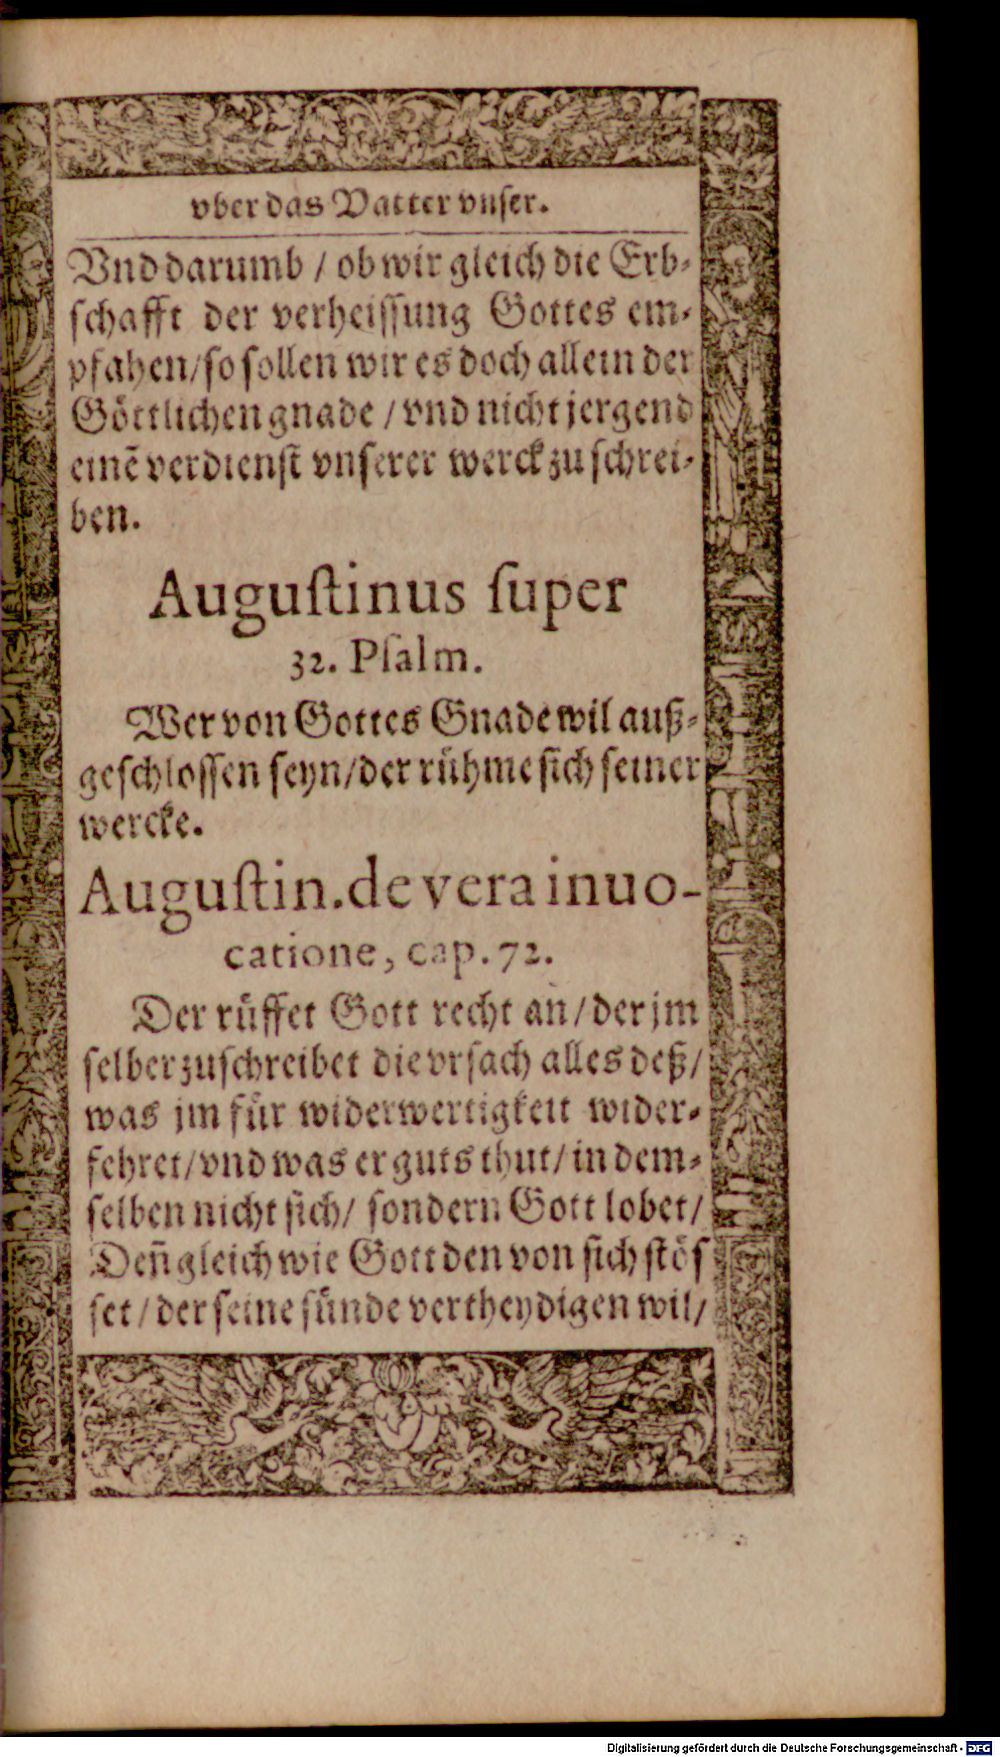 vber das Vatter vnſer.
Vnd darumb / ob wir gleich die Erb-
ſchafft der verheiſſung Gottes em-
pfahen/ſo ſollen wir es doch allein der
Göttlichen gnade / vnd nicht jergend
einē verdienſt vnſerer werck zu ſchrei-
ben.
Auguſtinus ſuper
32. Pſalm.
Wer von Gottes Gnade wil auß-
geſchloſſen ſeyn/der rühme ſich ſeiner
wercke.
Auguſtin. de vera inuo-
catione, cap. 72.
Der rüffet Gott recht an / der jm
ſelber zuſchreibet die vrſach alles deß/
was jm für widerwertigkeit wider-
fehret/vnd was er guts thut/ in dem-
ſelben nicht ſich/ ſondern Gott lobet/
Deñ gleich wie Gott den von ſich ſtöſ
ſet / der ſeine ſünde vertheydigen wil/
Digitalisierung gefördert durch die Deutsche Forschungsgemeinschaft - DFG